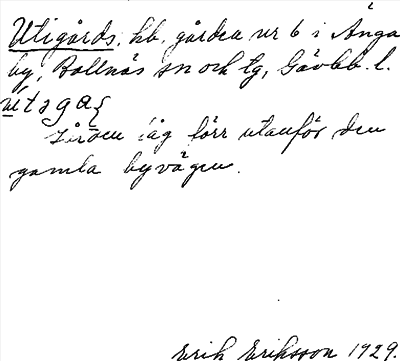 Utigårds, hb. gården nr 6 i Änga
by, Bollnäs sn och tg, Gävleb. l.
Gården låg förr utanför den
gamla byvägen.
Erik Eriksson 1929.